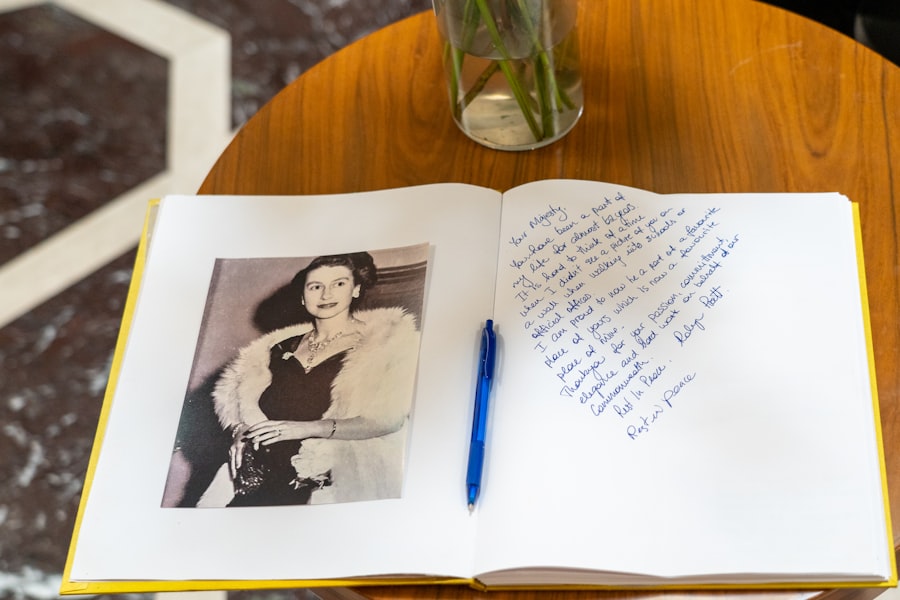 Your Majesty,
You have been a part of
my life for almost 62 years
It is hard to think of a time
when I didn't see a picture of you on
a wall when walking into schools or
official offices.
I am proud to now be a part of a favourite
place of yours which is now a favourite
place of mine.
Thankyou for your passion, commitment,
elegance and hard work on behalf of our
Commonwealth.
Rest In Peace. Robyn
Rest in Peace